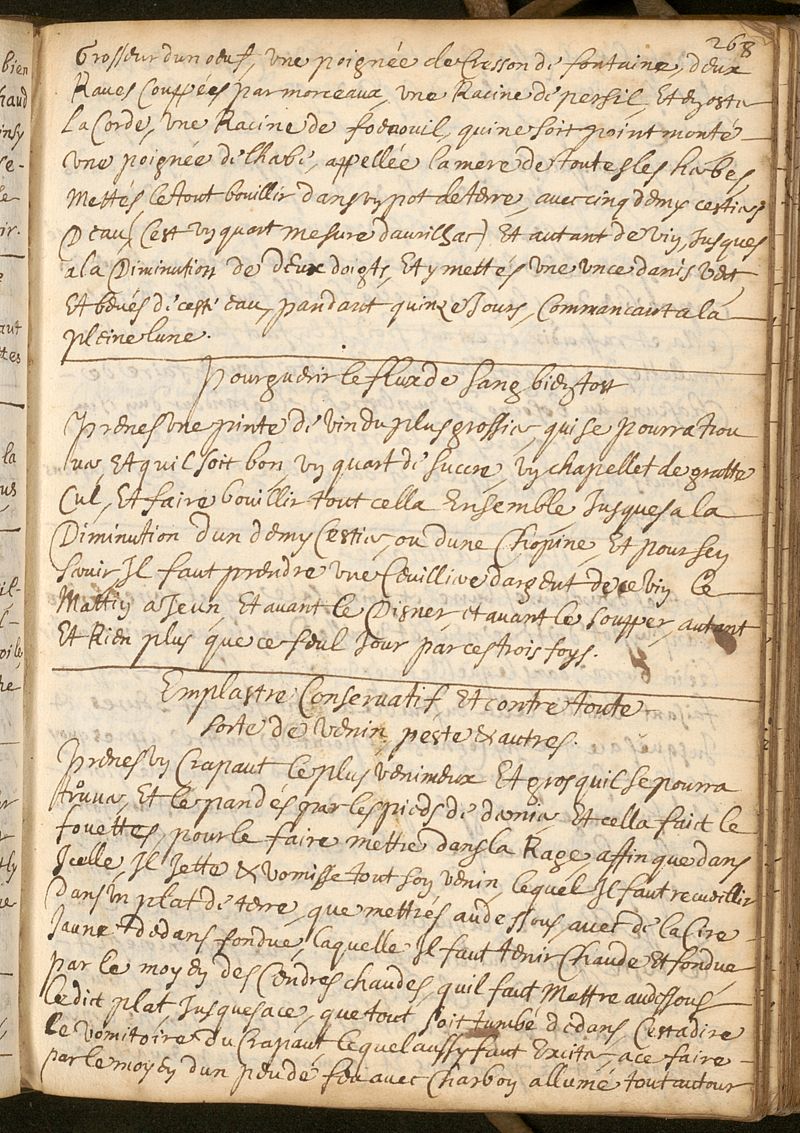 268
Grosseur dun oeuf, une poignée de Cresson de fontaine, deux
Raves Couppées par morceaux, une Racine de persil, Et en oster
La Corde, une Racine de fodnouil, qui ne soit point monté
une poignée de lhabe, appellée la mere de toutes les habes,
Mettés le tout bouillir dans un pot de terre, avec cinq demys cestiers
Deau, (Cest un quart mesure daurilhac) Et autant de vin, Jusques
a la Diminution de deux doigts, Et y mettés une unce danis vert
Et beués de cest eau, pandant quinze Jours, Commancant a la
pleine lune.
Pour guerir le flux de sang bien tost
Prenes une pinte de vin du plus grossier, qui se pourra trou
uer, Et quil soit bon un quart de succre, un chapellet de gratte
Cul, Et faire bouillir tout cella Ensemble Jusques a la
Diminution dun demy Cestier, ou dune Chopine, Et pour sen
seruir Il faut prendre une Ceuilliere dargent de ce vin le
Mattin a Jeun Et auant le Disner, et auant le soupper, autant
Et Rien plus que ce seul Jour par ces trois foys.
Emplastre Conseruatif, Et contre toute
sorte de venin, peste & autres.
Prenes un Crapaut le plus venimeux Et gros quil se pourra
trouuer, Et le pandés par les pieds de dernier, Et cella faict le
fouettes, pour le faire mettre dans la Rage, affin que dans
Icelle Il Jette & vomisse tout son venin, lequel Il faut recueillir
dans un plat de terre, que mettrés au dessous, avec de la Cire
Jaune dedans fondue, laquelle Il faut tenir Chaude Et fondue
par le moyen des Cendres chaudes, quil faut Mettre au dessous
ledict plat Jusques a ce, que tout soit tumbé dedans, Cest a dire
le vomitoire du Crapaut lequel aussy faut Exciter, a ce faire
par le moyen dun peu de feu avec Charbon allumé tout autour